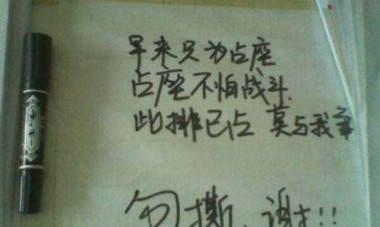 早来只为占座
占座不怕战斗
此排已占 莫与我争
勿撕,谢谢!!